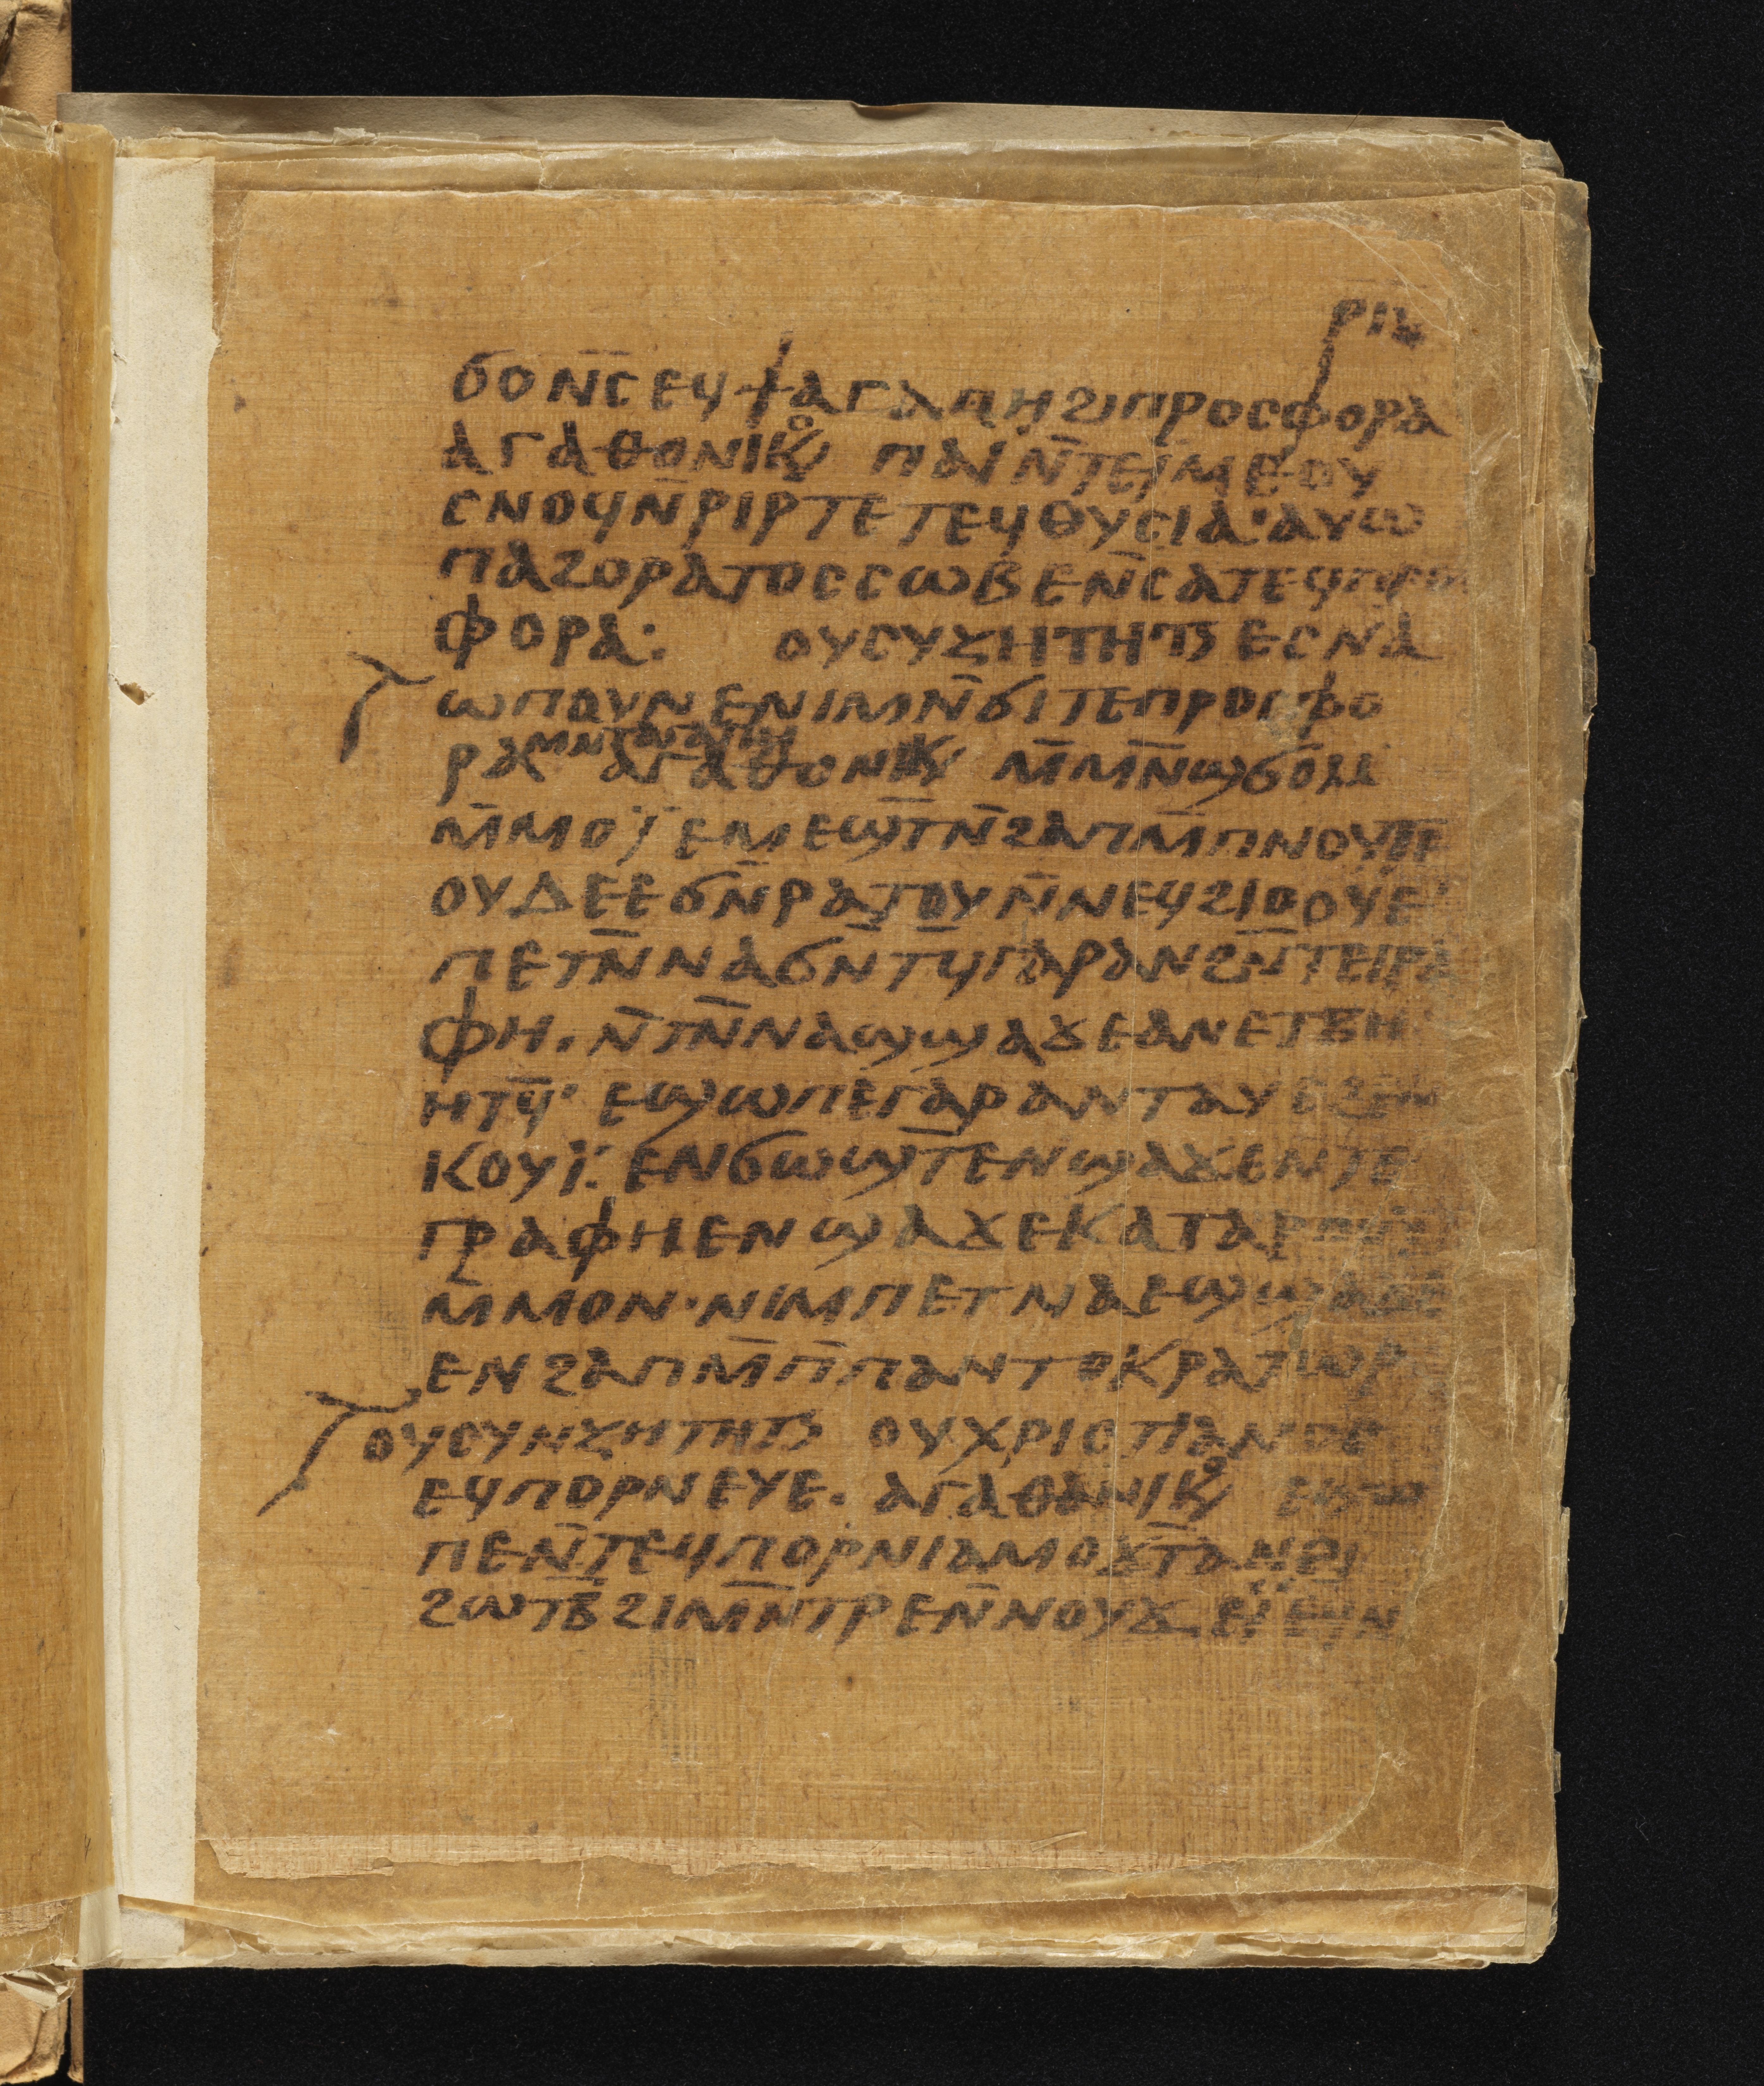 ⲣⲓⲍ
ϭⲟⲛ̅ⲥ̅ⲉϥϯⲁⲅⲁⲡⲏϩⲓⲡⲣⲟⲥⲫⲟⲣⲁ
ⲁⲅⲁⲑⲟⲛⲓⲕⲟ ⲡⲁⲓⲛ̅ⲧⲉⲓ̈ⲙⲉⲟⲩ
ⲥⲛⲟϥⲛ̅ⲣⲓⲣⲧⲉⲧⲉϥⲑⲩⲥⲓⲁ·ⲁⲩⲱ
ⲡⲁϩⲟⲣⲁⲧⲟⲥⲥⲱⲃⲉⲛ̅ⲥⲁⲧⲉϥⲡⲣⲟⲥ
ⲫⲟⲣⲁ: ⲟⲩⲥⲩⲍⲏⲧⲏⲧⲏⲥ ⲉⲥⲛⲁ
ϣⲡⲟⲩⲛⲉⲛⲓⲙⲛ̅ϭⲓⲧⲉⲡⲣⲟⲥⲫⲟ
ⲣⲁⲙⲛⲧⲁⲅⲁⲡⲏ ⲁⲅⲁⲑⲟⲛⲓⲕ ⲙ̅ⲙⲛ̅ϣϭⲟⲙ
ⲙ̅ⲙⲟⲓ̈ⲉⲙⲉϣⲧ̅ⲛ̅ϩⲁⲡⲙ̅ⲡⲛⲟⲩⲧⲉ
ⲟⲩⲇⲉⲉϭⲛ̅ⲣⲁⲧⲟⲩⲛ̅ⲛⲉϥϩⲓⲟⲟⲩⲉ·
ⲡⲉⲧⲛ̅ⲛⲁϭⲛ̅ⲧϥ̅ⲅⲁⲣⲁⲛϩⲛ̅ⲧⲉⲅⲣⲁ
ⲫⲏ. ⲛ̅ⲧⲛ̅ⲛⲁϣϣⲁϫⲉⲁⲛⲉⲧⲃⲏ
ⲏⲧϥ̅· ⲉϣⲱⲡⲉⲅⲁⲣⲁⲛⲧⲁⲩⲉϩⲉⲛ
ⲕⲟⲩⲓ̈: ⲉⲛϭⲱϣⲧ̅ⲉⲛϣⲁϫⲉⲛ̅ⲧⲉ
ⲅⲣⲁⲫⲏⲉⲛϣⲁϫⲉⲕⲁⲧⲁⲣⲟⲛ
ⲙ̅ⲙⲟⲛ·ⲛⲓⲙⲡⲉⲧⲛⲁⲉϣϣⲁϫⲉ
ⲉⲛϩⲁⲡⲙ̅ⲡ̅ⲡⲁⲛⲧⲟⲕⲣⲁⲧⲱⲣ
ⲟⲩⲥⲩⲛⲍⲏⲧⲏⲧⲏⲥ ⲟⲩⲭⲣⲓⲥⲧⲓⲁⲛⲟⲥ
ⲉϥⲡⲟⲣⲛⲉⲩⲉ. ⲁⲅⲁⲑⲁⲛⲓⲕⲟ
ⲡⲉⲛ̅ⲧⲉϥⲡⲟⲣⲛⲓⲁⲙⲟϫⲧ̅
ϩⲱⲧⲃ̅ϩⲓⲙⲛ̅ⲧⲣⲉⲛ̅ⲛⲟⲩϫ